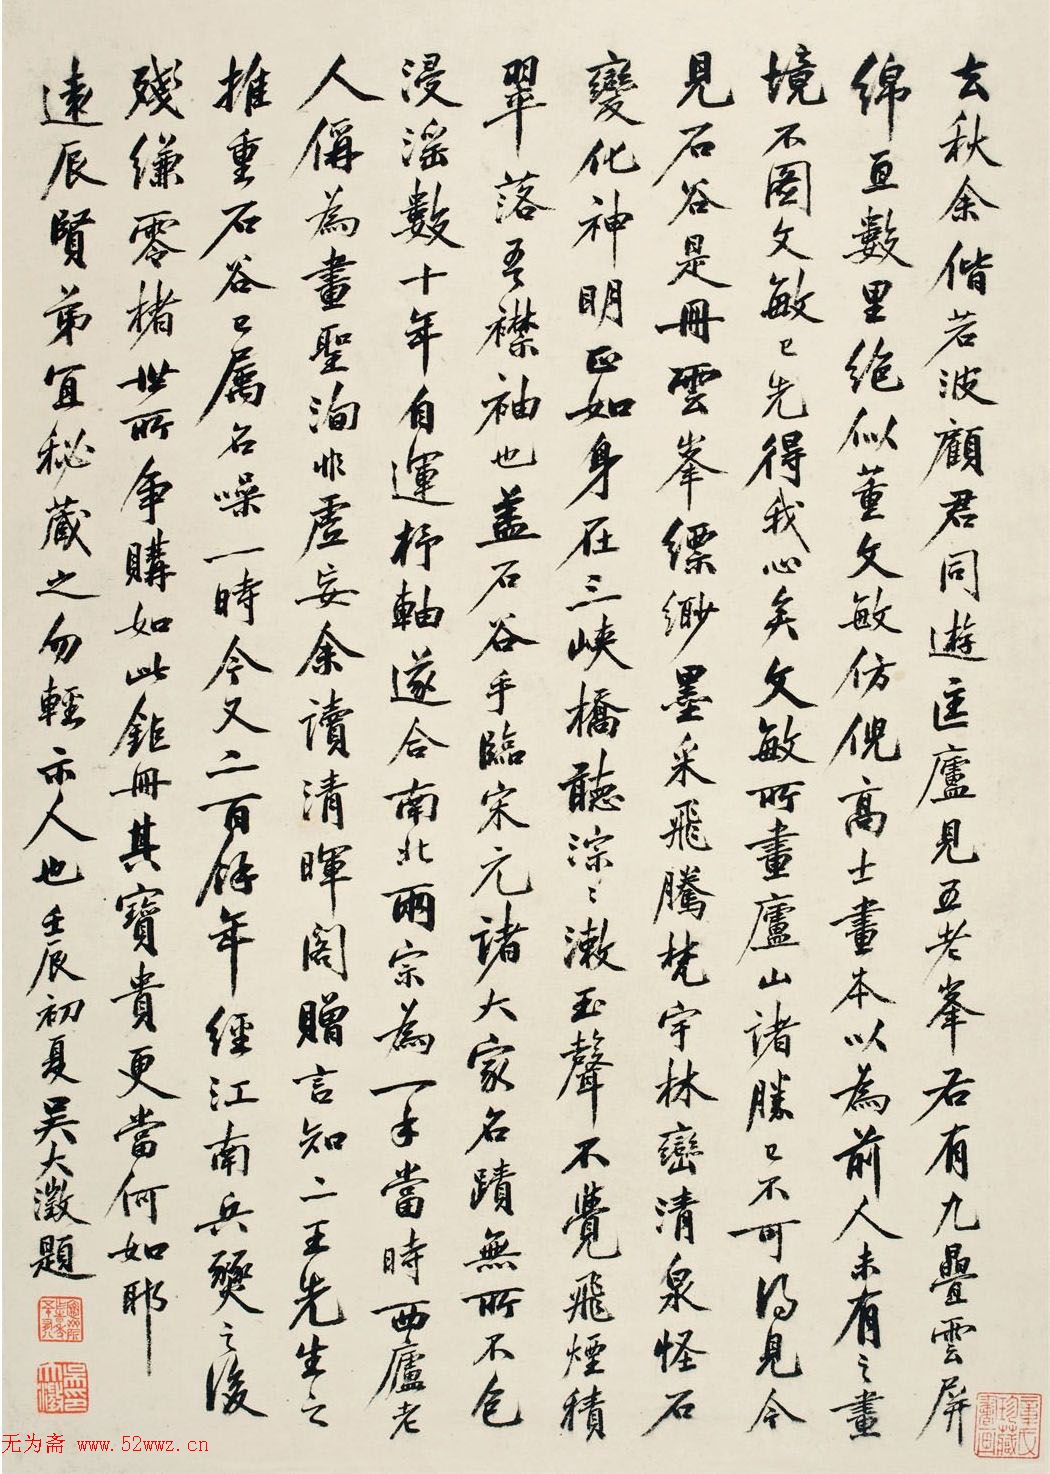 去秋余偕若波顧君同遊匡廬見五老峯右有九疊雲屏
綿亘數里絶似董文敏仿倪高士畫本以為前人未有之畫
境不圖文敏已先得我心矣文敏所畫廬山諸勝已不可得見今
見石谷是冊雲峯縹緲墨采飛騰梵宇林巒清泉怪石
變化神明正如身在三峽橋聽淙〻漱玉聲不覺飛煙積
翠落吾襟袖也盖石谷手臨宋元諸大家名蹟無所不包
浸滛數十年自運杼軸遂合南北兩宗為一手當時西廬老
人偁為畫聖洵非虛妄余讀清暉閣贈言知二王先生之
推重石谷已屬名噪一時今又二百餘年經江南兵燹之後
殘縑零楮世所爭購如此鉅冊其寶貴更當何如耶
遠辰賢弟宜秘藏之勿輕示人也壬辰初夏吳大澂題
无为斋 www.52wwz.cn